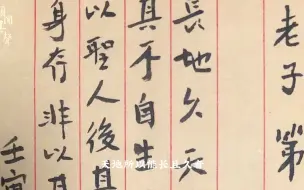 老子第
長地久天
其不自生
以聖人後其
身存非以其
壬寅
天地所以能长且久者